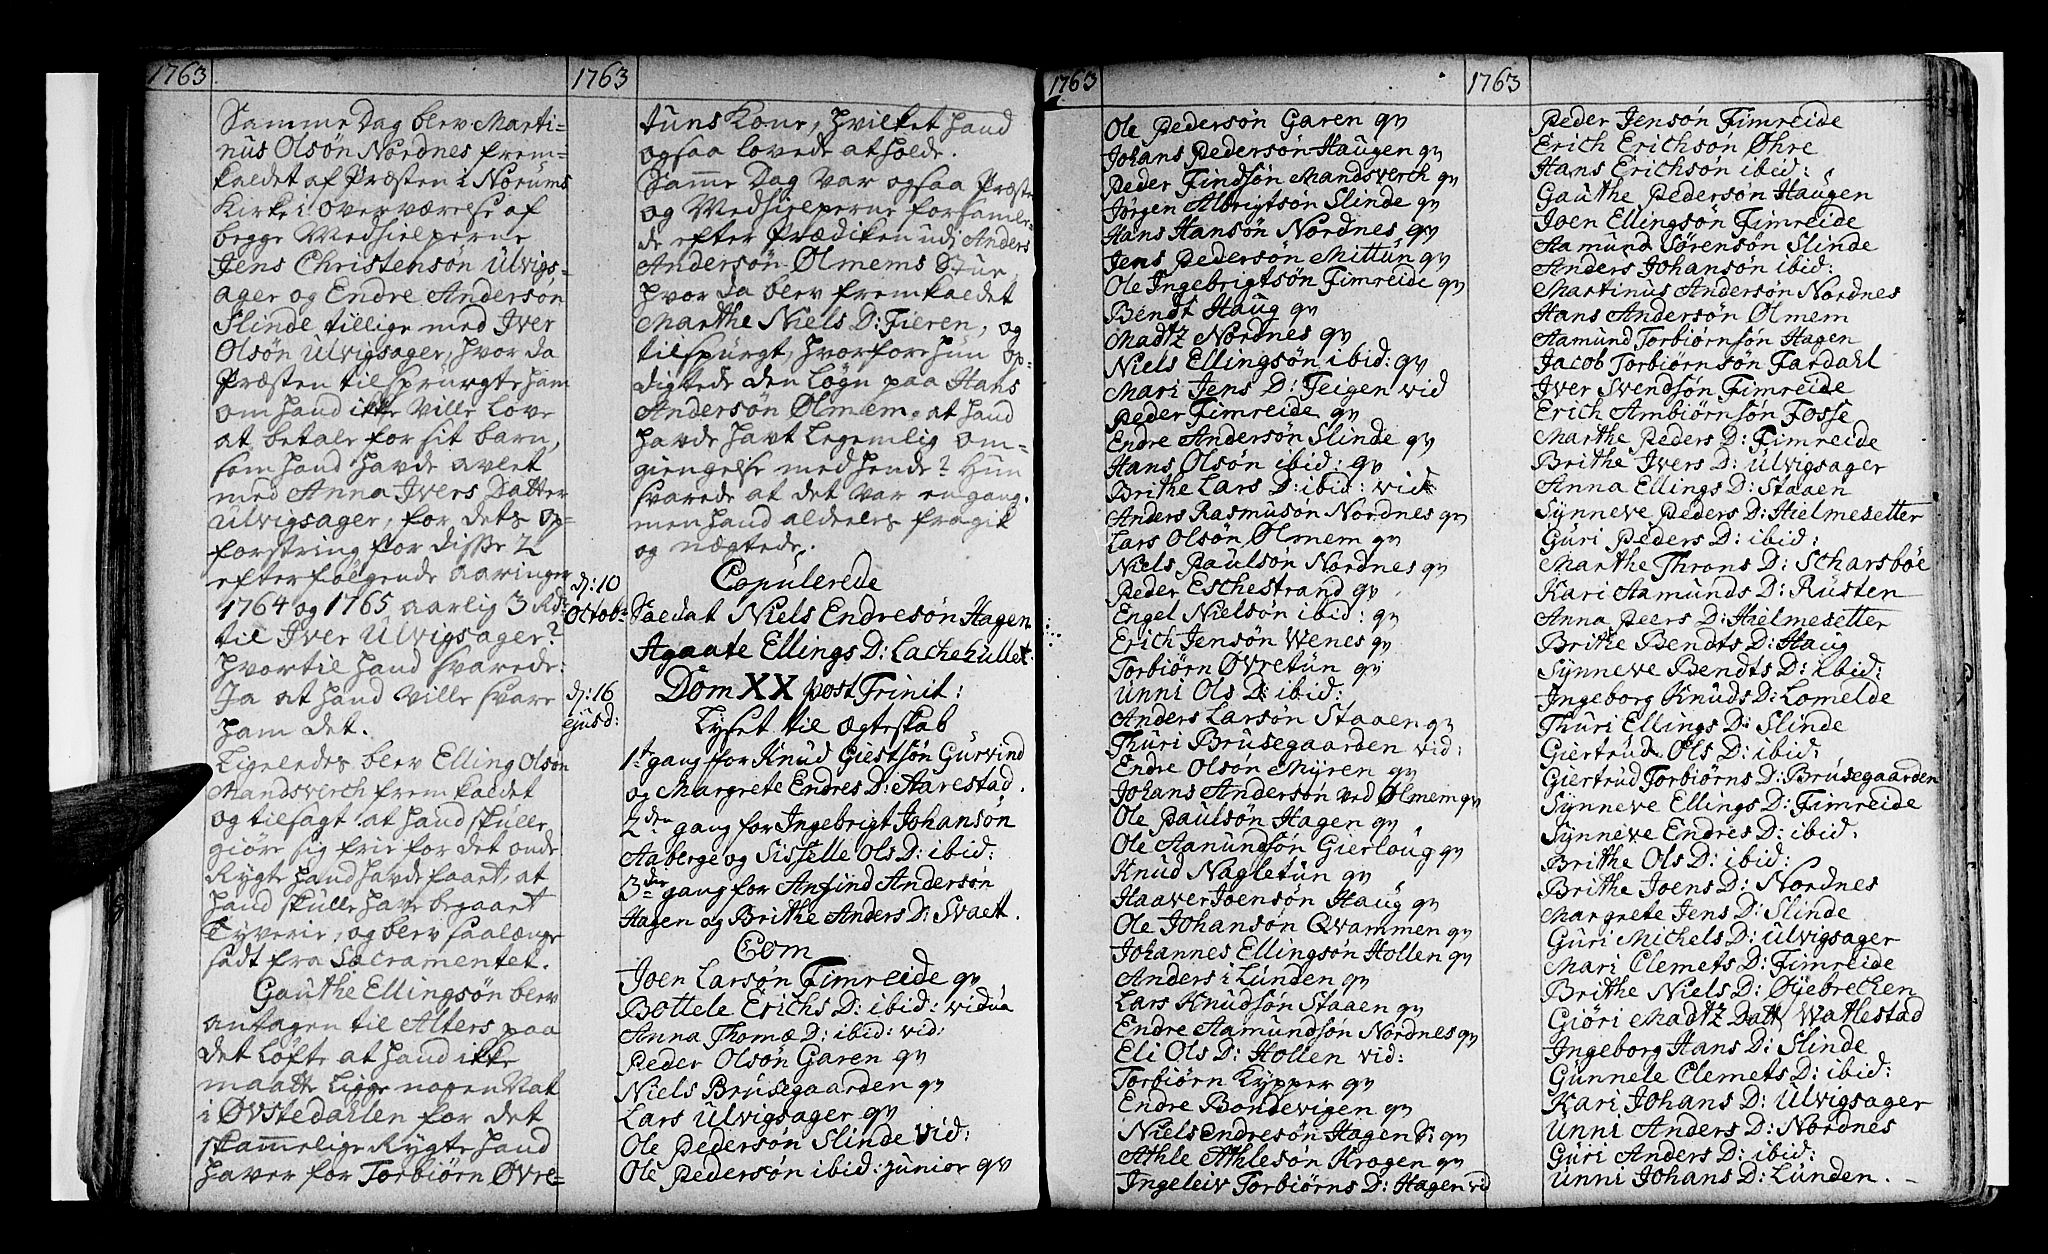 1763
Samme Dag blev Marti-
nus Olsøn Nordnes frem-
kaldet af Præsten i Norums
Kirke i overværelse af
begge Medhielperne
Jens Christensøn Ulvigs-
ager og Endre Andersøn
Slinde tillige med Iver
Olsøn Ulvigsager, hvor da
Præsten tilspurgte ham
om hand ikke ville love
at betale for sit barn,
som hand havde avlet
med Anna Ivers Datter
Ulvigsager, for dets op-
fostring for disse 2
efterfølgende aaringer
1764 og 1765 aarlig 3 Rd:
til Iver Ulvigsager?
hvortil hand svarede:
Ja at hand ville svare
ham det.
Ligeledes blev Elling Olsøn
Mandsverch fremkaldet
og tilsagt at hand skulle
giøre sig frie for det onde
Rygte hand havde faaet, at
hand skulle have begaaet
Tyverie, og blev saalænge
sadt fra Sacramentet.
Gauthe Ellingsøn blev
antagen til Alters paa
det løfte at hand ikke
maatte ligge nogen Nat
i Øvstedahlen for det
skammelige Rygte hand
haver for Torbiørn Øvre-
1763
tuns Kone, hvilket hand
ogsaa lovede at holde.
Samme Dag var ogsaa Præsten
og Medhielperne forsamle-
de efter Prædiken udi Anders
Andersøn Ølmems Stue
hvor da blev fremkaldet
Marthe Niels D: Fieren, og
tilspurgt, hvorfore hun op-
digtede den løgn paa Hans
Andersøn Ølmem, at hand
havde havt legemlig om-
giengelse med hende? Hun
svarede at det var engang,
men hand aldeeles fragik
og nægtede.
Copulerede
d: 10
Octob: Soldat Niels Endresøn Hagen
Agaate Ellings D: Lachehullet.
d: 16
ejusd:
Dom XX post Trinit:
Lyset til Ægteskab
1te gang for Knud Giestsøn Gurvind
og Margrete Endres D: Aarestad.
2den gang for Ingebrigt Johansøn
Aaberge og Sisselle Ols D: ibid:
3die gang for Anfind Andersøn
Hagen og Brithe Anders D: Svaet.
Com
Joen Larsøn Fimreide qv
Bottele Erichs D: ibid: vidua
Anna Thomæ D: ibid: vid:
Peder Olsøn Garen qv
Niels Brusegaarden qv
Lars Ulvigsager qv
Ole Pedersøn Slinde vid:
Ole Pedersøn ibid: junior qv
1763
Ole Pedersøn Garen qv
Johans Pedersøn Haugen qv
Peder Findsøn Mandsverch qv
Jørgen Albrigtsøn Slinde qv
Hans Hansøn Nordnes qv
Jens Pedersøn Mittun qv
Ole Ingebrigtsøn Fimreide qv
Bendt Haug qv
Madtz Nordnes qv
Niels Ellingsøn ibid: qv
Mari Jens D: Feigen vid
Peder Fimreide qv
Endre Andersøn Slinde qv
Hans Olsøn ibid: qv
Brithe Lars D: ibid: vid
Anders Rasmusøn Nordnes qv
Lars Olsøn Ølmem qv
Niels Paulsøn Nordnes qv
Peder Eschestrand qv
Engel Nielsøn ibid: qv
Erich Jensøn Wenes qv
Torbiørn Øvretun qv
Unni Ols D: ibid:
Anders Larsøn Staaen qv
Thuri Brusegaarden vid:
Endre Olsøn Myren qv
Johans Andersøn ved Ølmem qv
Ole Paulsøn Hagen qv
Ole Aamundsøn Gierloug qv
Knud Nagletun qv
Haaver Joensøn Haug qv
Ole Johansøn Qvammen qv
Johannes Ellingsøn Hollen qv
Anders i Lunden qv
Lars Knudsøn Staaen qv
Endre Aamundsøn Nordnes qv
Eli Ols D: Hollen vid:
Torbiørn Kypper qv
Endre Bondevigen qv
Niels Endresøn Hagen S: qv
Athle Athlesøn Krogen qv
Ingeleiv Torbiørns D: Hagen vid
1763
Peder Jensøn Fimreide
Erich Erichsøn Øhre
Hans Erichsøn ibid:
Gauthe Pedersøn Haugen
Joen Ellingsøn Fimreide
Aamund Sørensøn Slinde
Anders Johansøn ibid:
Martinus Andersøn Nordnes
Hans Andersøn Ølmem
Aamund Torbiørnsøn Hagen
Jacob Torbiørnsøn Fardahl
Iver Svendsøn Fimreide
Erich Ambiørnsøn Fosse
Marthe Peders D: Fimreide
Brithe Ivers D: Ulvigsager
Anna Ellings D: Staaen
Synneve Peders D: Hielmesetter
Guri Peders D: ibid:
Marthe Throns D: Scharsbøe
Kari Aamunds D: Rusten
Anna Peers D: Hielmesetter
Brithe Bendts D: Haug
Synneve Bendts D: ibid:
Ingeborg Knuds D: Lomelde
Thuri Ellings D: Slinde
Giertrud Ols D: ibid:
Giertrud Torbiørns D: Brusegaarden
Synneve Ellings D: Fimreide
Synneve Endres D: ibid:
Brithe Ols D: ibid:
Brithe Joens D: Nordnes
Margrete Jens D: Slinde
Guri Michels D: Ulvigsager
Mari Clemets D: Fimreide
Brithe Niels D: Øyebrechen
Giøri Madtz Datt Watlestad
Ingeborg Hans D: Slinde
Gunnele Clemets D: ibid:
Kari Johans D: Ulvigsager
Unni Anders D: Nordnes
Guri Anders D: ibid:
Unni Johans D: Lunden.